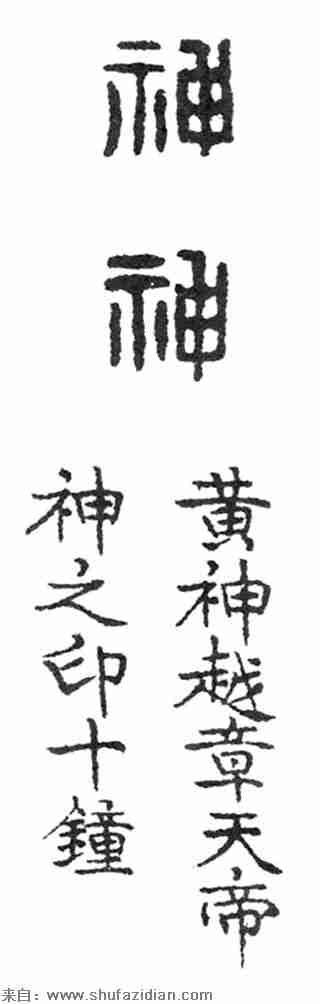 神
神
黄神越章天帝
神之印十鐘
来自：www.shufazidian.com